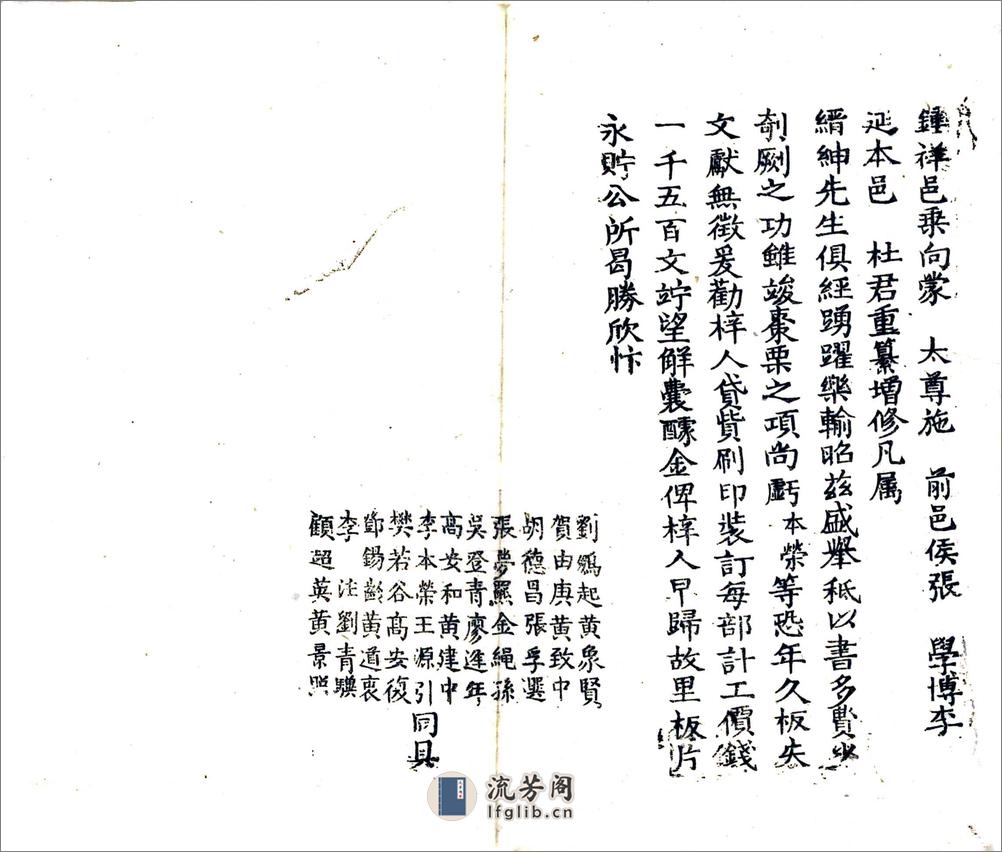 鍾祥邑乗向蒙　太尊施　前邑侯張　學博李
延本邑　杜君重纂增修凡属
縉紳先生俱經踴躍樂輸昭玆盛舉秪以書多費
剞劂之功雖竣棗栗之項尚虧本榮等恐年久板失
文獻無徵爰勸梓人貸貲刷印裝訂每部計工價錢
一千五百文竚望解囊醵金俾梓人早歸故里板片
永貯公所曷勝欣忭
劉鵷起黄象賢
賀由庚黄致中
胡德昌張孚選
張夢羆金繩孫
吳登青廖進年
高安和黄建中
李本榮王源引同具
樊若谷高安復
鄧錫齡黄道衷
李　淮劉青驥
顧超英黄景熙
流芳阁
lfglib.cn